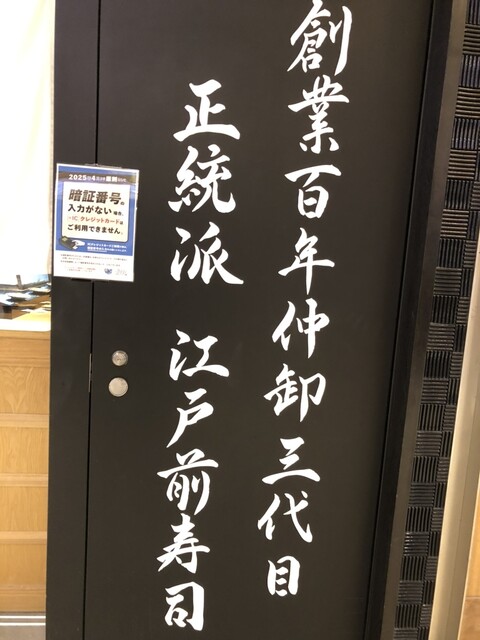 創業百年仲卸三代目
正統派 江戸前寿司
2025年4月
暗証番号の
入力がない場合、
IC クレジットカードは
ご利用できません。